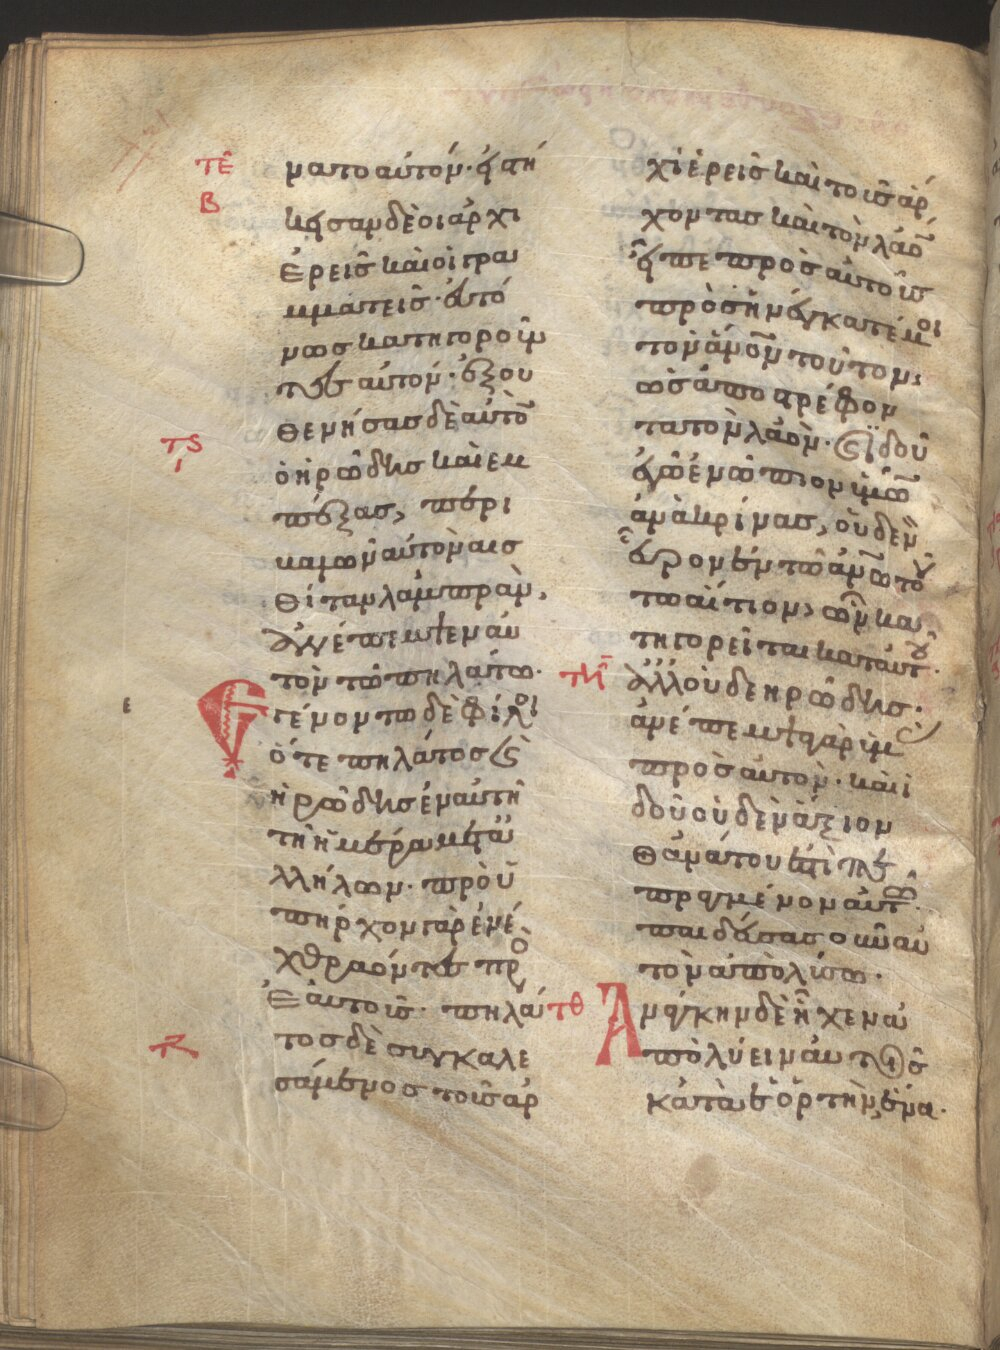 τε
νατο αὐτόν· εἱστή
β
κεισαν δὲ οἱ ἀρχι
ερεῖς καὶ οἱ γρα
μματεῖς· εὐτό
νως κατηγοροῦν
τες αὐτόν· ἐξου
θενήσας δὲ αὐτὸ
τς
ὁ ἡρώδης καὶ ἐμ
παίξας, περι
βαλὼν αὐτὸν αἰσ
θῆταν λαμπρὰν,
ἀνέπεμψεν αὐ
τὸν τῶ πηλάτω·
Ἐγένοντο δὲ φίλοι
ὅ τε πηλάτος καὶ
ἡρώδης ἐν αὐτῆ
τῆ ἡμέρα μετὰ
λλήλων· προϋ
πῆρχον γὰρ ἐν ἔ
χθρα ὄντες πρὸ
ἑαυτοῖς· πηλά
τος δὲ συγκαλε
σάμενος τοῖς ἀρ
χιερεῖς καὶ τοῖς ἄρ
χοντας καὶ τὸν λαὸ
εἶπε πρὸς αὐτοῖς
προσηνέγκατέ μοι
τὸν ἄνον τοῦτον,
ὡς ἀποστρέφον
τα τὸν λαόν· καὶ ἰδοῦ
ἐγὼ ἐνώπιον ὑμῶ
ἀνακρίνας, οὐδὲν
εὗρον ἐν τῶ ἀνω του
τω αἴτιον, ὧν κα
τηγορεῖται κατ αὐτου·
τη
ἀλλ οὐδὲ ἡρώδης·
ἀνέπεμψα γὰρ ὑμ
πρὸς αὐτὸν· καὶ ἰ
δοὺ οὐδὲν ἄξιον
θανάτου ἐστὶ πε
πραγμένον αὐτῶ·
παιδεύσας οὖν αὐ
τὸν ἀπολύσω·
τθ
Ἀνάγκην δὲ εἶχεν ἀ
πολύειν αὐτοῖς
κατὰ ἑορτὴν, ἕνα·